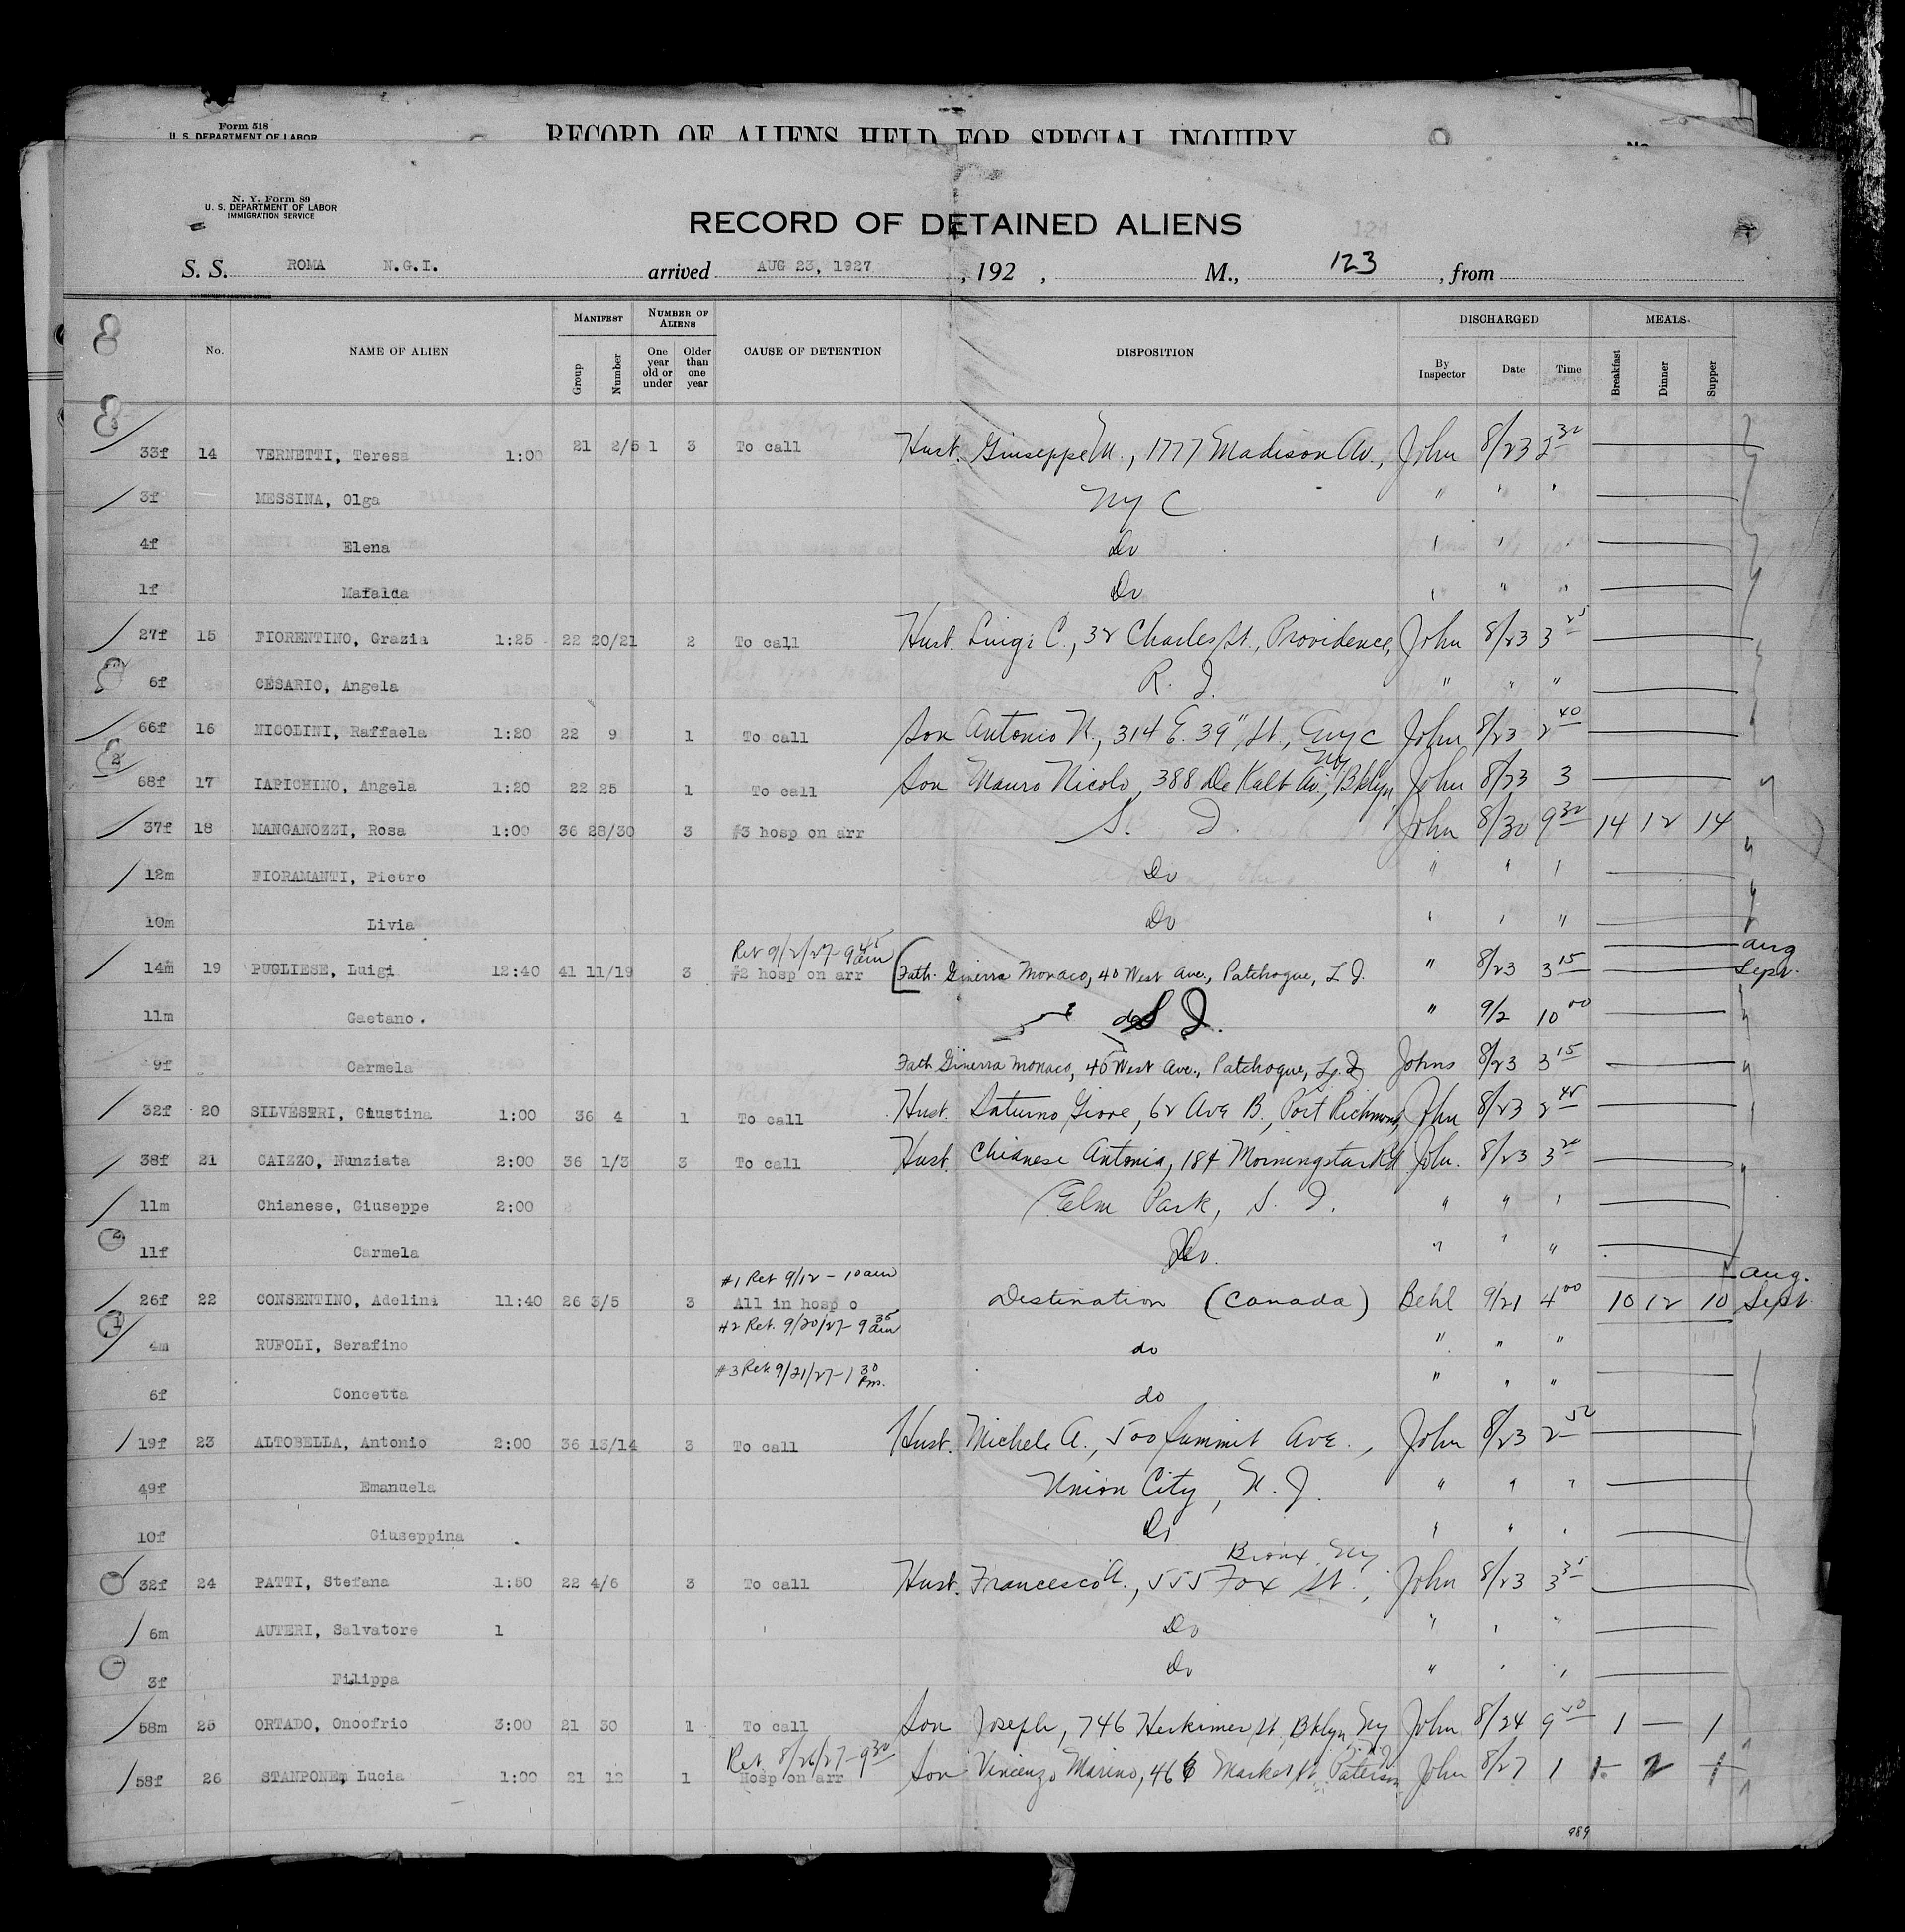 Form 518
U. S. DEPARTMENT OF LABOR
RECORD OF ALIENS HELD FOR SPECIAL INQUIRY
No.
N. Y. Form 89
U. S. DEPARTMENT OF LABOR
IMMIGRATION SERVICE
RECORD OF DETAINED ALIENS
S. S. ROMA N.G.I. arrived AUG 23, 1927, 192 , M., 123, from
No. NAME OF ALIEN MANIFEST Group Number NUMBER OF ALIENS One year old or under Older than one year CAUSE OF DETENTION DISPOSITION DISCHARGED By Inspector Date Time MEALS. Breakfast Dinner Supper
33f 14 VERNETTI, Teresa 1:00 21 2/5 1 3 To call Hust. Giuseppe M., 1777 Madison Av., John 8/23 2 30
3f MESSINA, Olga NY C " " "
4f Elena Do " " "
1f Mafalda Do " " "
27f 15 FIORENTINO, Grazia 1:25 22 20/21 2 To call Hust. Luigi C., 32 Charles St., Providence, John 8/23 3 25
6f CESARIO, Angela R. I. " " "
66f 16 NICOLINI, Raffaela 1:20 22 9 1 To call Son Antonio N., 314 E. 39" St, NYC John 8/23 2 40
68f 17 IAPICHINO, Angela 1:20 22 25 1 To call Son Mauro Nicolo, 388 De Kalb Av., Bklyn NY John 8/23 3
37f 18 MANGANOZZI, Rosa 1:00 36 28/30 3 #3 hosp on arr S. I. John 8/30 9 30 14 12 14
12m FIORAMANTI, Pietro Do " " "
10m Livia Do " " "
Ret 9/2/27-9 45 am aug
14m 19 PUGLIESE, Luigi 12:40 41 11/19 3 #2 hosp on arr Fath. Ginerra Monaco, 40 West Ave., Patchogue, L. I. " 8/23 3 15 Sept.
11m Gaetano. do S I. " 9/2 10 00
9f Carmela Fath Ginerra Monaco, 40 West Ave., Patchogue, L. I. Johns 8/23 3 15
32f 20 SILVESTRI, Giustina 1:00 36 4 1 To call Hust. Saturno Giove, 62 Ave B., Port Richmond, John 8/23 2 45
38f 21 CAIZZO, Nunziata 2:00 36 1/3 3 To call Hust. Chianese Antonio, 184 Morningstar Rd John. 8/23 3 20
11m Chianese, Giuseppe 2:00 Elm Park, S. I. " " "
11f Carmela Do. " " "
#1 Ret 9/12 - 10 am aug.
26f 22 CONSENTINO, Adelina 11:40 26 3/5 3 All in hosp o Destination (Canada) Behl 9/21 4 00 10 12 10 Sept.
#2 Ret. 9/20/27-9 35 am
4m RUFOLI, Serafino do " " "
#3 Ret 9/21/27-1 30 Pm.
6f Concetta do " " "
19f 23 ALTOBELLA, Antonio 2:00 36 13/14 3 To call Hust. Michele A., 500 Summit Ave., John 8/23 2 50
49f Emanuela Union City, N. J. " " "
10f Giuseppina Do " " "
Bronx NY
32f 24 PATTI, Stefana 1:50 22 4/6 3 To call Hust. Francesco A., 555 Fox St., John 8/23 3 35
6m AUTERI, Salvatore 1 Do " " "
3f Filippa Do " " "
58m 25 ORTADO, Onoofrio 3:00 21 30 1 To call Son Joseph, 746 Herkimer St, Bklyn NY John 8/24 9 50 1 — 1
Ret 8/26/27-9 30 N. J.
58f 26 STANPONE, Lucia 1:00 21 12 1 Hosp on arr Son Vincenzo Marino, 466 Market St Paterson John 8/27 1 1 2 1
989